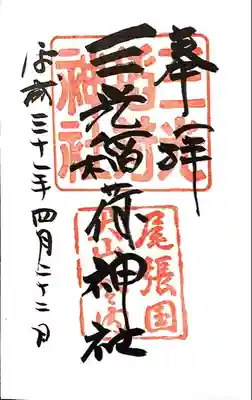 奉拝
三光稲荷神社
平成三十一年四月二十二日
三光
稲荷
神社
尾張国
犬山